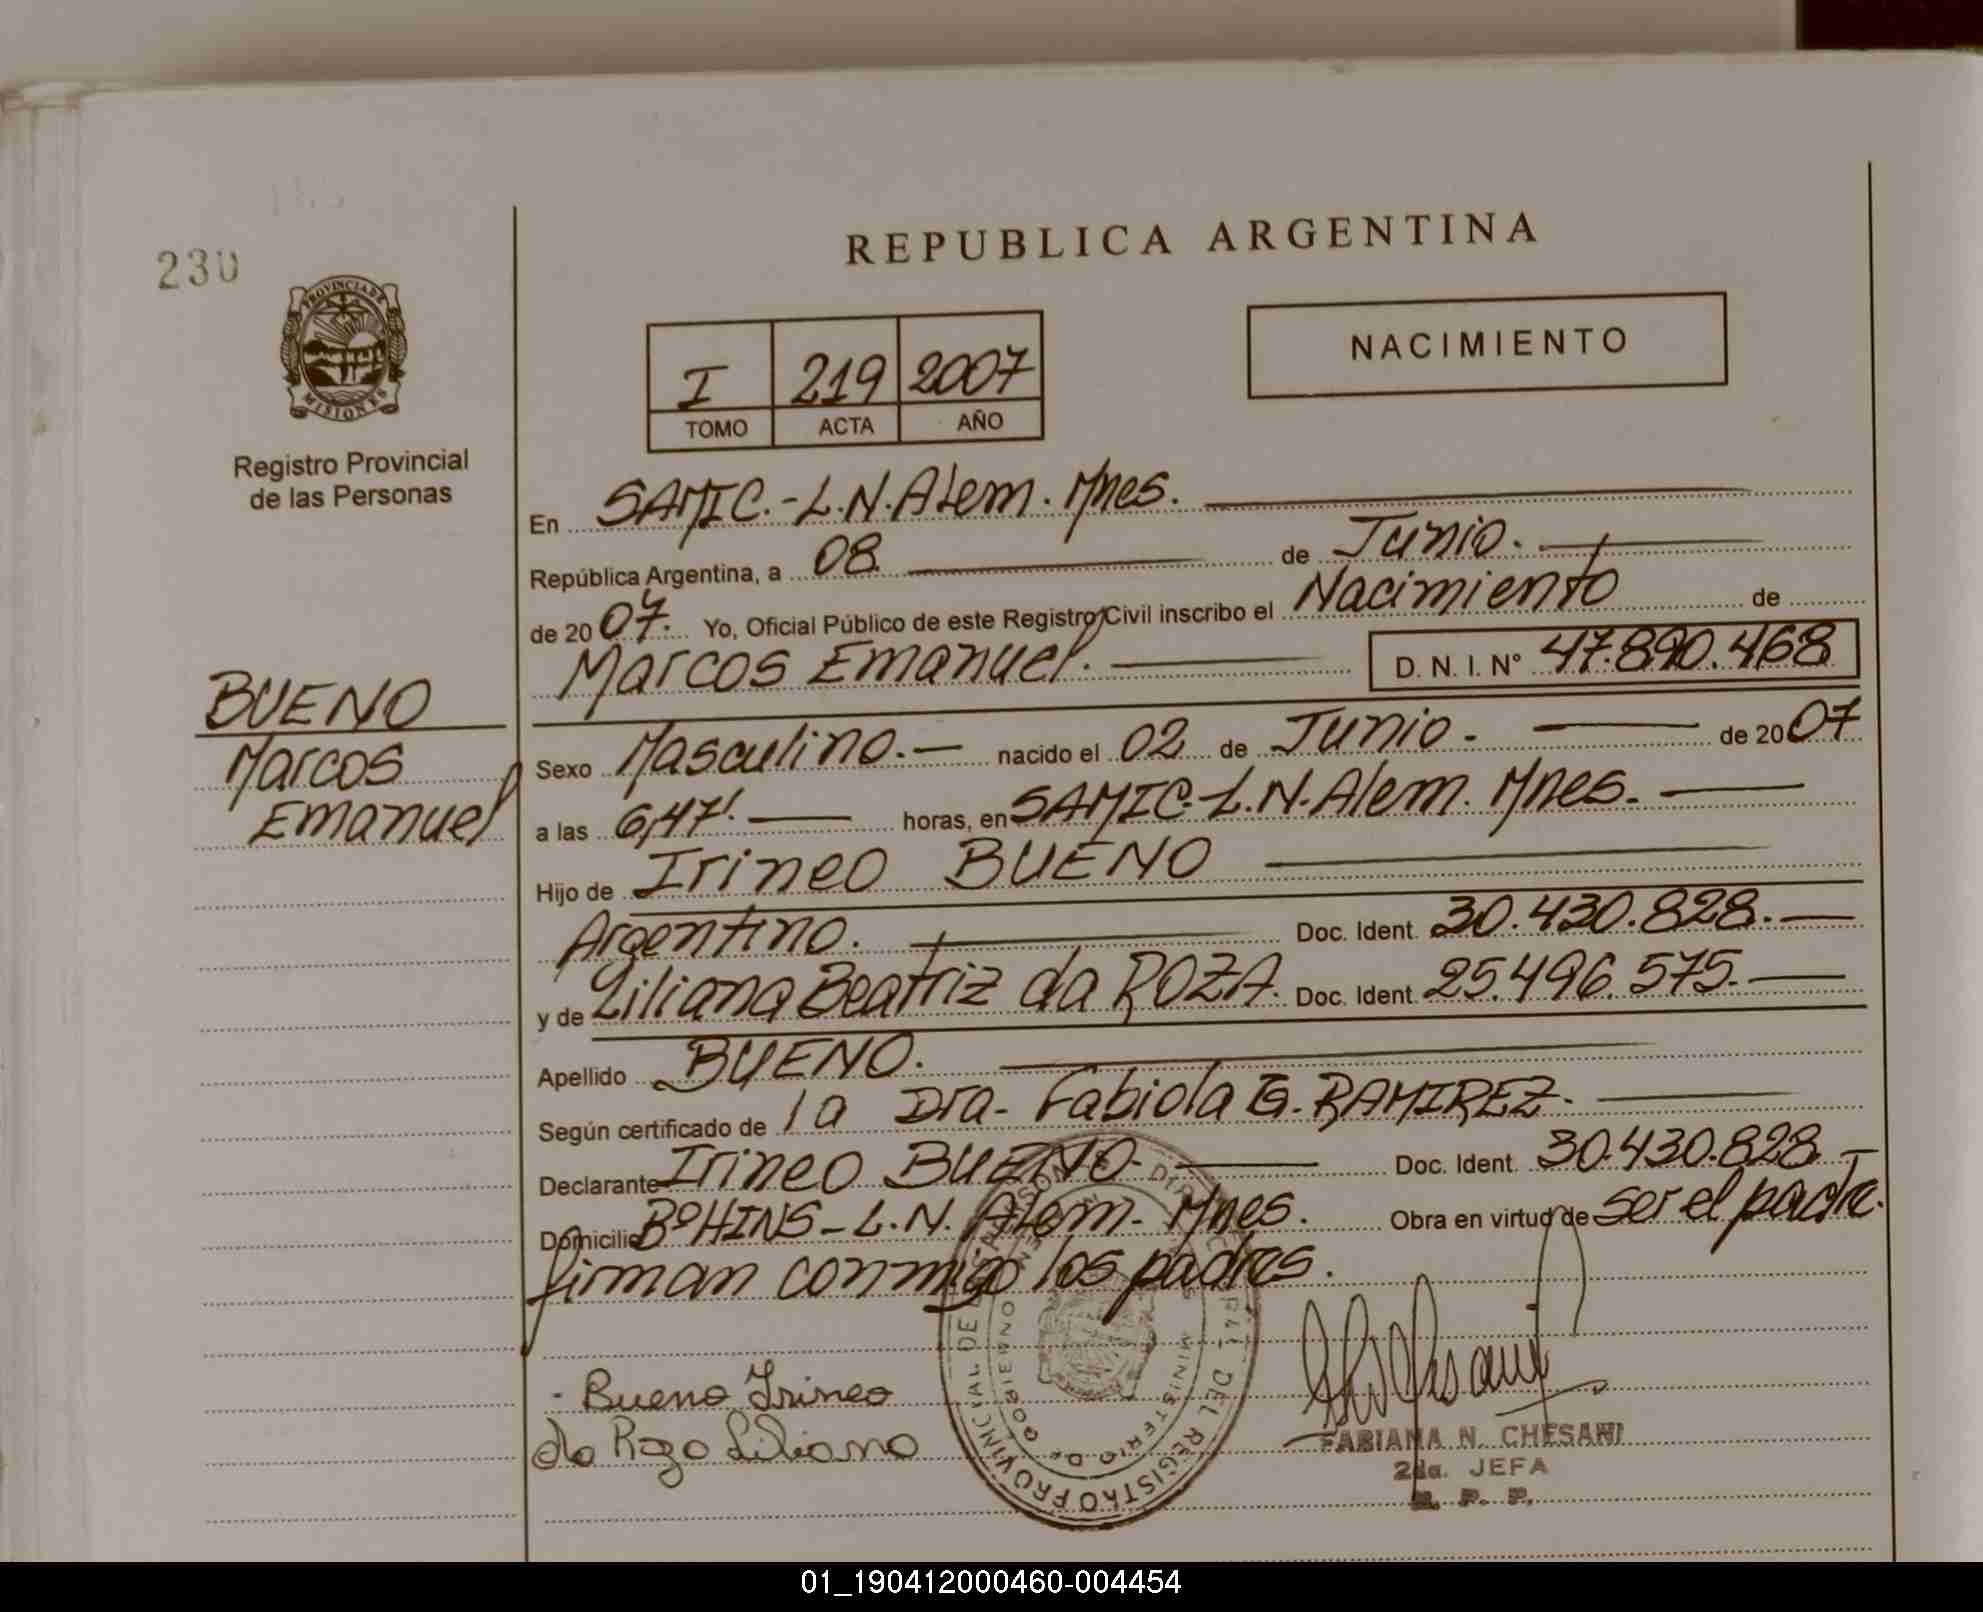 230
PROVINCIA DE
MISIONES
Registro Provincial
de las Personas
REPUBLICA ARGENTINA
I 219 2007
TOMO ACTA AÑO
NACIMIENTO
En SAMIC.-L.N.Alem. Mnes.
República Argentina, a 08. de Junio.
de 20 07. Yo, Oficial Público de este Registro Civil inscribo el Nacimiento de
Marcos Emanuel. D. N. I. N° 47.890.468
BUENO
Marcos
Emanuel
Sexo Masculino.- nacido el 02 de Junio. de 20 07
a las 6,47'. horas, en SAMIC.-L.N.Alem. Mnes.
Hijo de Irineo BUENO
Argentino. Doc. Ident. 30.430.828.
y de Liliana Beatriz da ROZA. Doc. Ident. 25.496.575.
Apellido BUENO.
Según certificado de la Dra. Fabiola G. RAMIREZ.
Declarante Irineo BUENO. Doc. Ident. 30.430.828
Domicilio B° HINS - L.N. Alem. Mnes. Obra en virtud de ser el padre.
firman conmigo los padres.
Bueno Irineo
da Roza Liliana
FABIANA N. CHESANI
2da. JEFA
R. P. P.
01_190412000460-004454